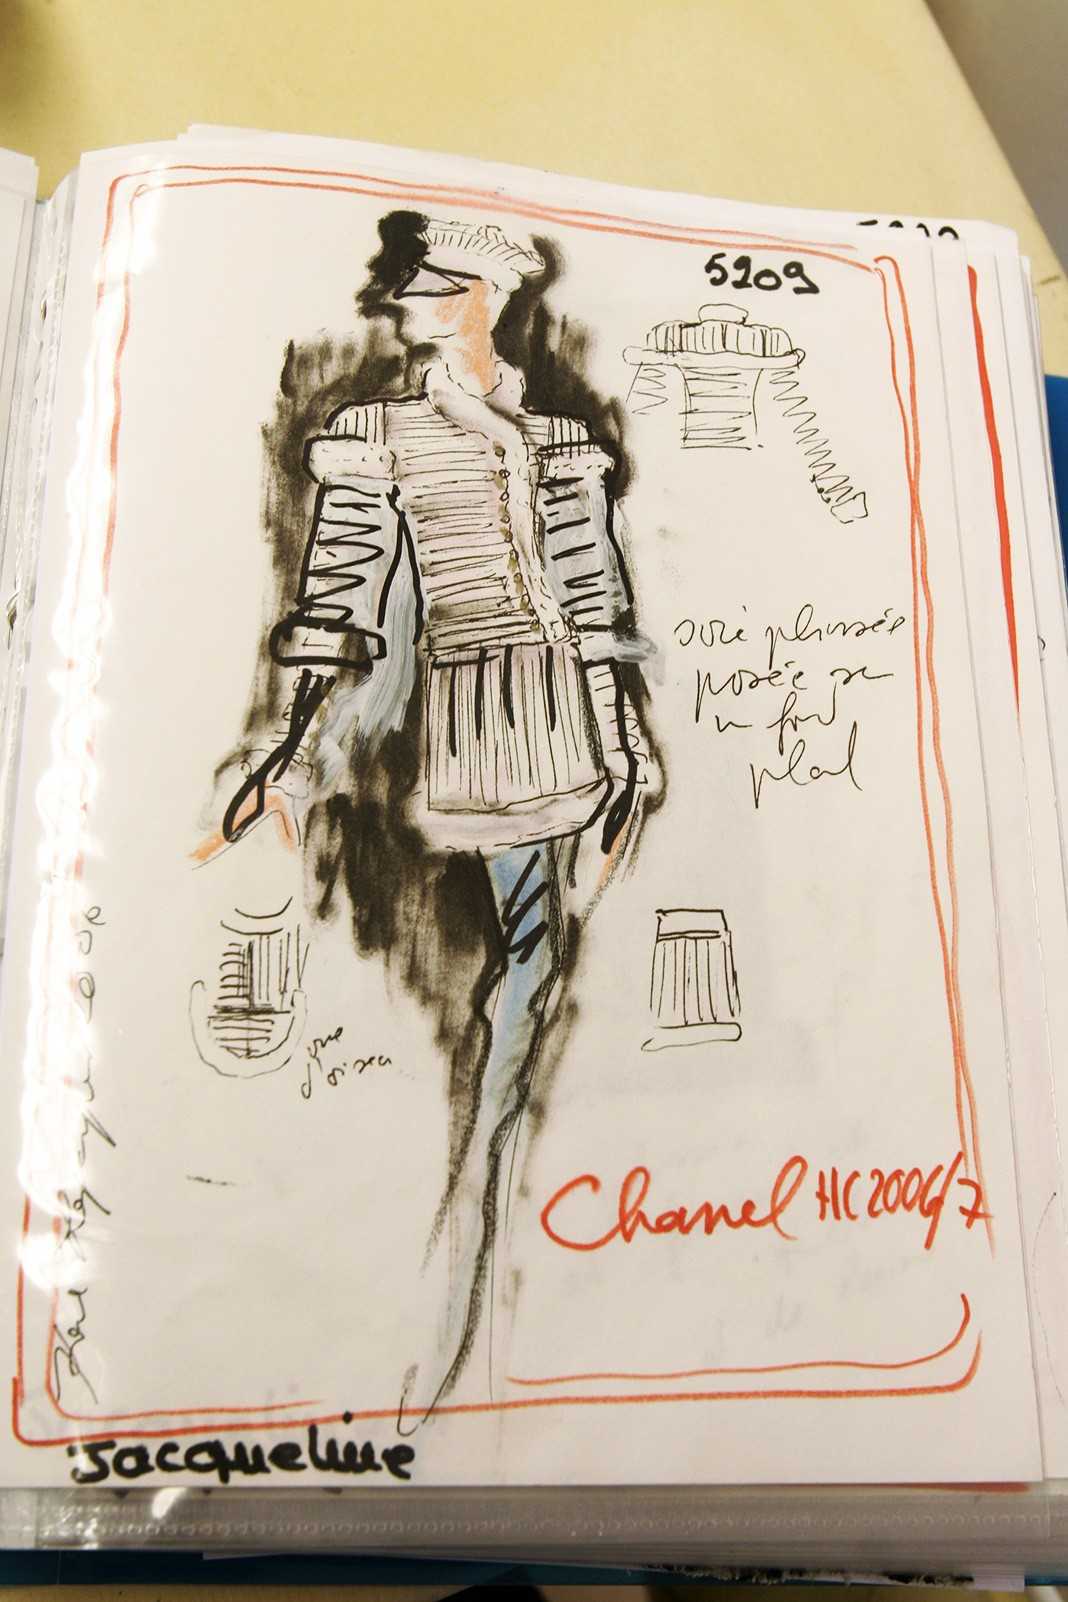 5209
soie plissée
posée sur
un fond
plat
d'oiseau
Chanel HC 2006/7
Karl Lagerfeld 2006
Jacqueline